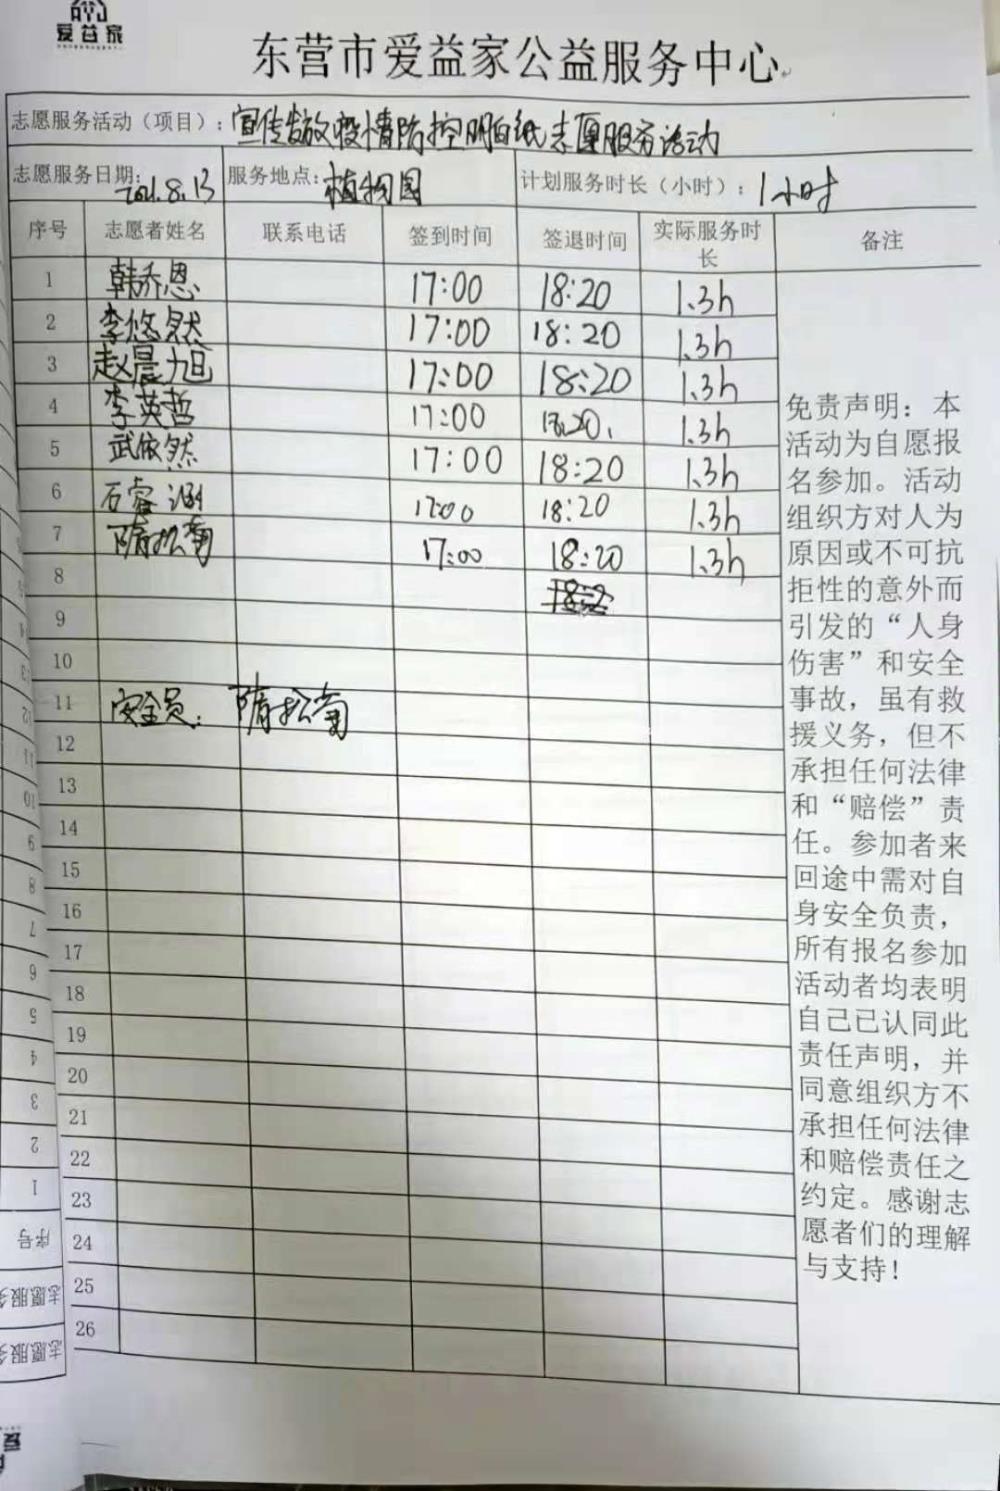 爱益家
东营市爱益家公益服务中心
志愿服务活动（项目）：宣传发放疫情防控明白纸志愿服务活动
志愿服务日期：2021.8.13 服务地点：植物园 计划服务时长（小时）：1小时
序号 志愿者姓名 联系电话 签到时间 签退时间 实际服务时长 备注
1 韩乔恩 17:00 18:20 1.3h
2 李悠然 17:00 18:20 1.3h
3 赵晨旭 17:00 18:20 1.3h
4 李英哲 17:00 18:20. 1.3h
5 武依然 17:00 18:20 1.3h
6 石睿涵 17:00 18:20 1.3h
7 隋松菊 17:00 18:20 1.3h
8
9
10
11 安全员：隋松菊
12
13
14
15
16
17
18
19
20
21
22
23
24
25
26
免责声明：本
活动为自愿报
名参加。活动
组织方对人为
原因或不可抗
拒性的意外而
引发的“人身
伤害”和安全
事故，虽有救
援义务，但不
承担任何法律
和“赔偿”责
任。参加者来
回途中需对自
身安全负责，
所有报名参加
活动者均表明
自己已认同此
责任声明，并
同意组织方不
承担任何法律
和赔偿责任之
约定。感谢志
愿者们的理解
与支持！